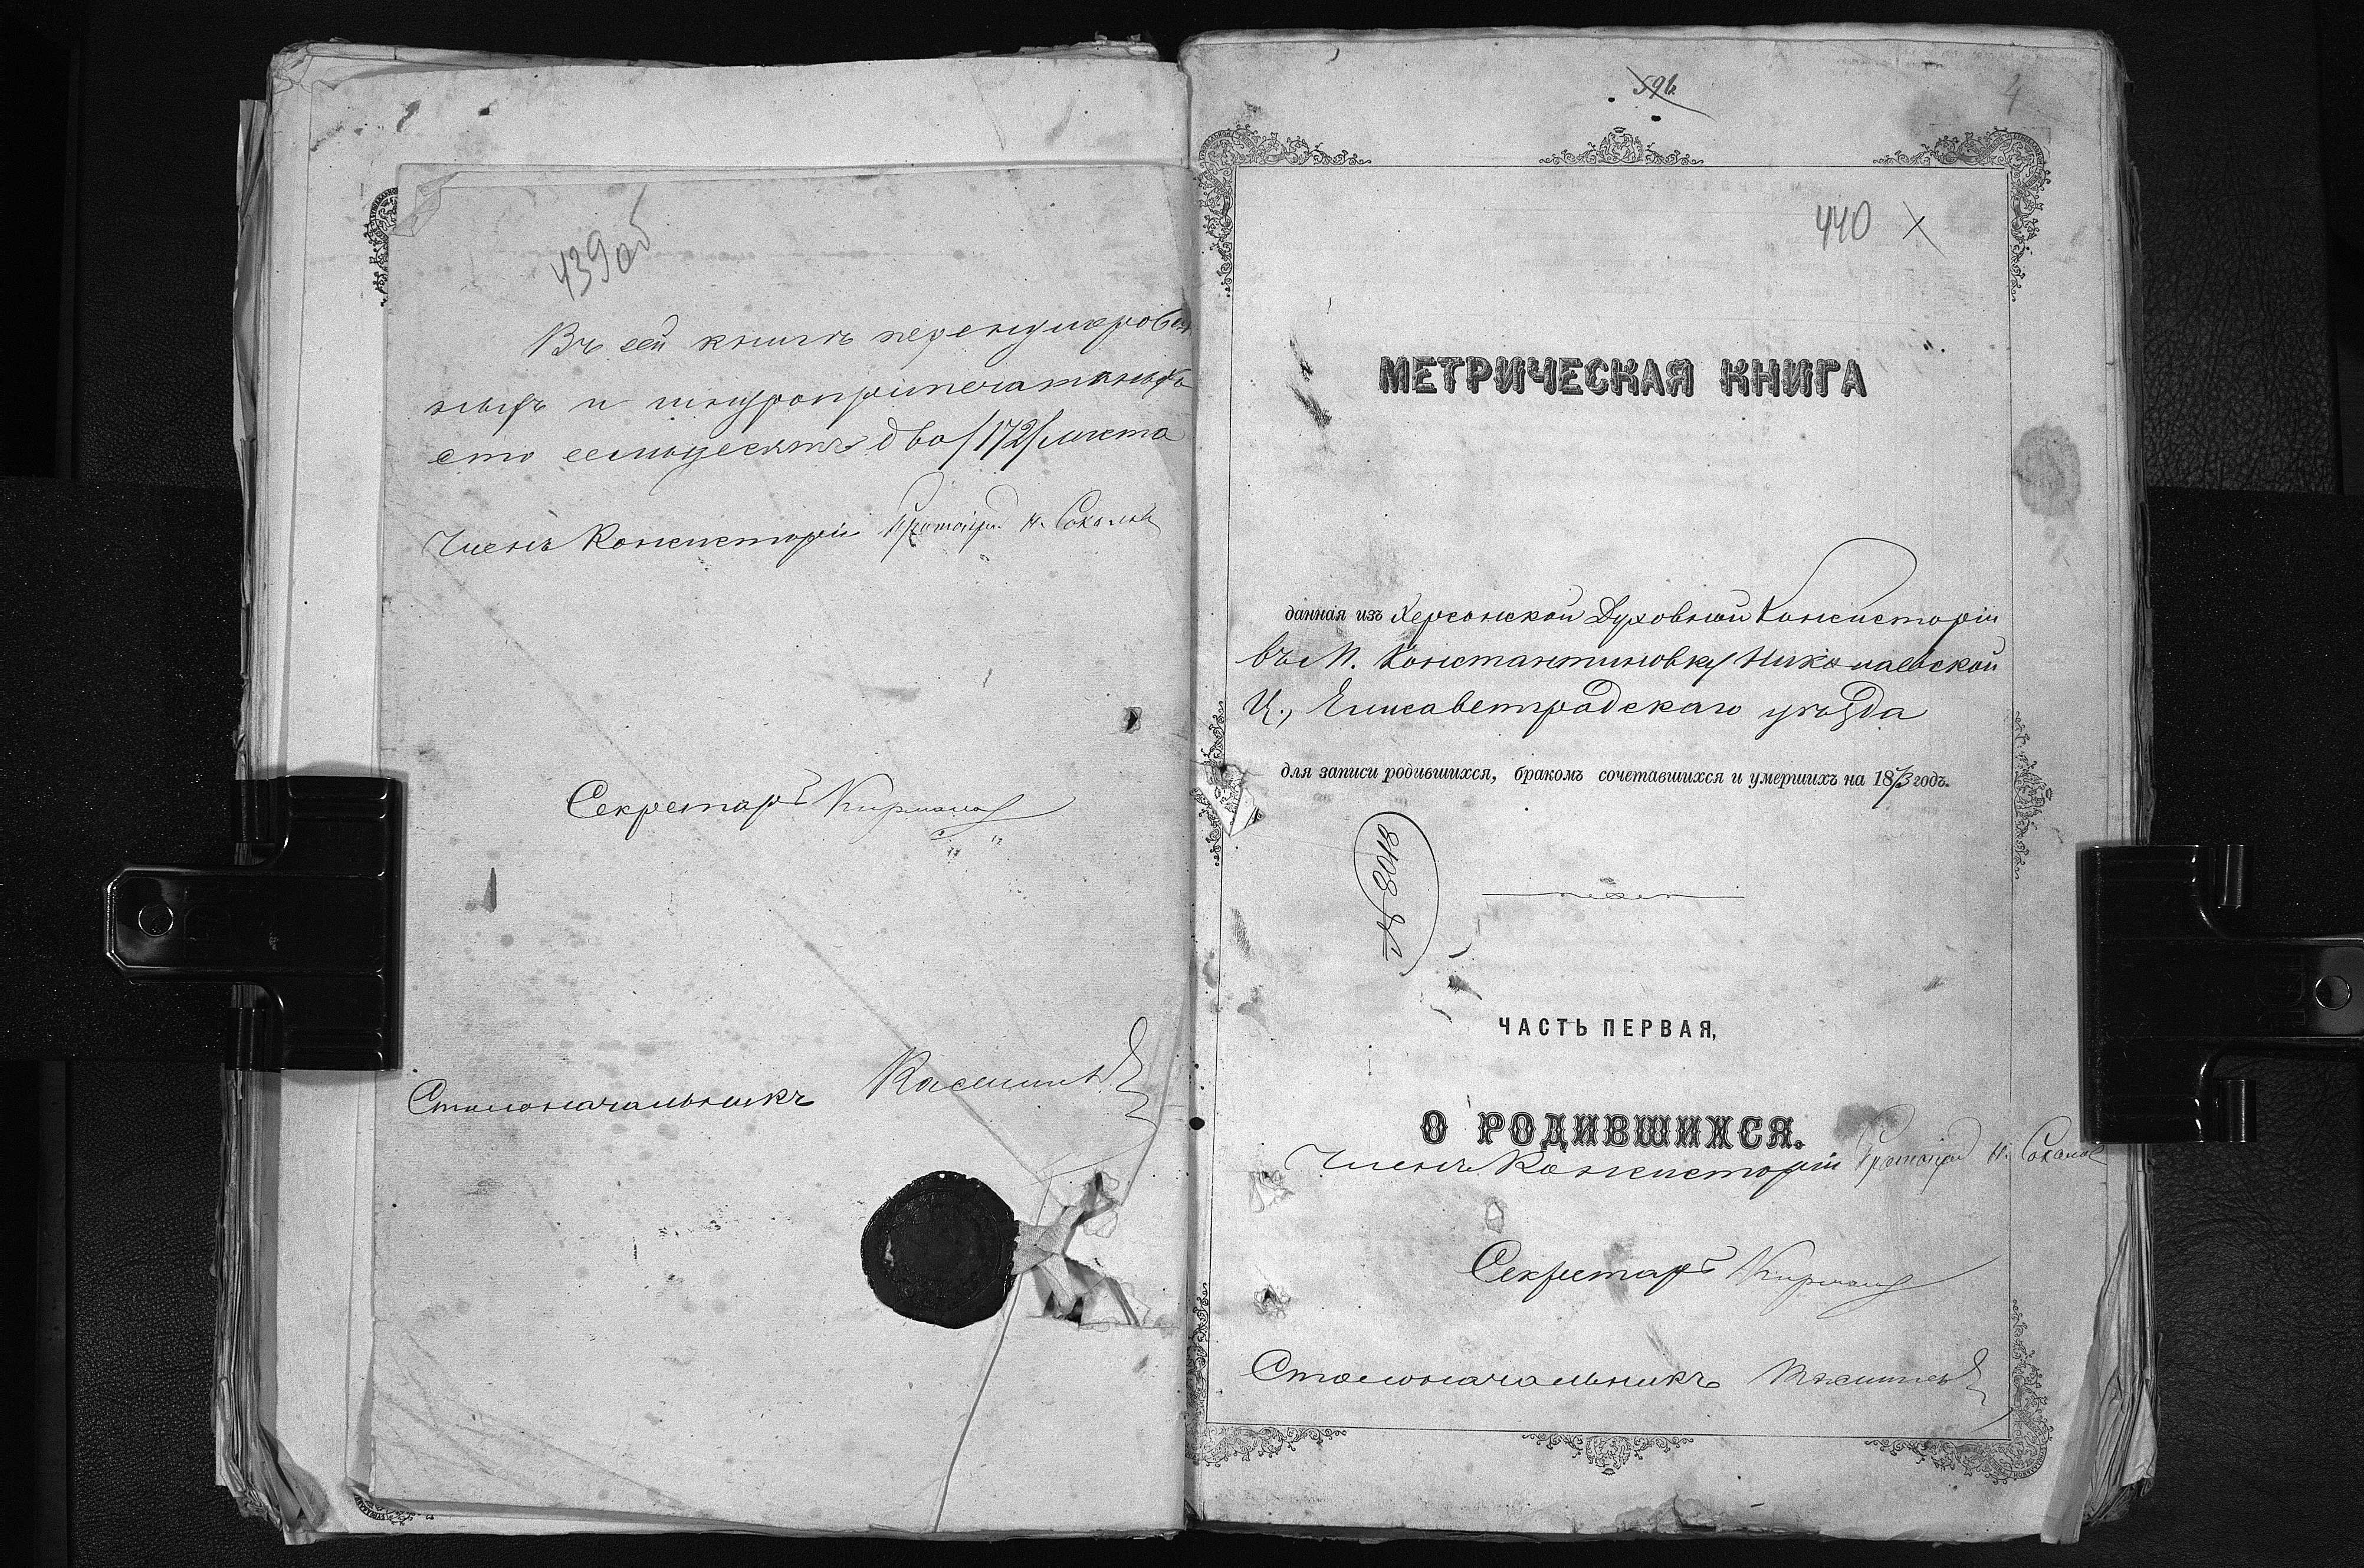 439об
Въ сей книгѣ перенумерован
ныхъ и шнуроприпечатанныхъ
сто семьдесятъ два /172/ листа
Членъ Консисторіи Протоіерей Н. Соколовъ
Секретарь
Столоначальникъ
596
4
440 х
МЕТРИЧЕСКАЯ КНИГА
данная изъ Херсонской Духовной Консисторіи
въ М. Константиновку Николаевской
Ц., Елисаветградскаго уѣзда
для записи родившихся, бракомъ сочетавшихся и умершихъ на 1873 годъ.
ЧАСТЬ ПЕРВАЯ,
О РОДИВШИХСЯ.
Членъ Консисторіи Протоіерей Н. Соколов
Секретарь
Столоначальникъ